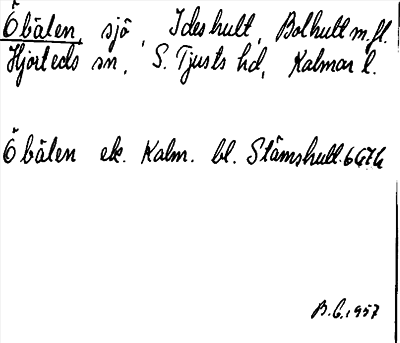 Öbälen, sjö, Ideshult, Bolhult m.fl.
Hjorteds sn, S. Tjusts hd, Kalmar l.
Öbälen ek. Kalm. bl. Stämshult 6G7h
B.G. 1957